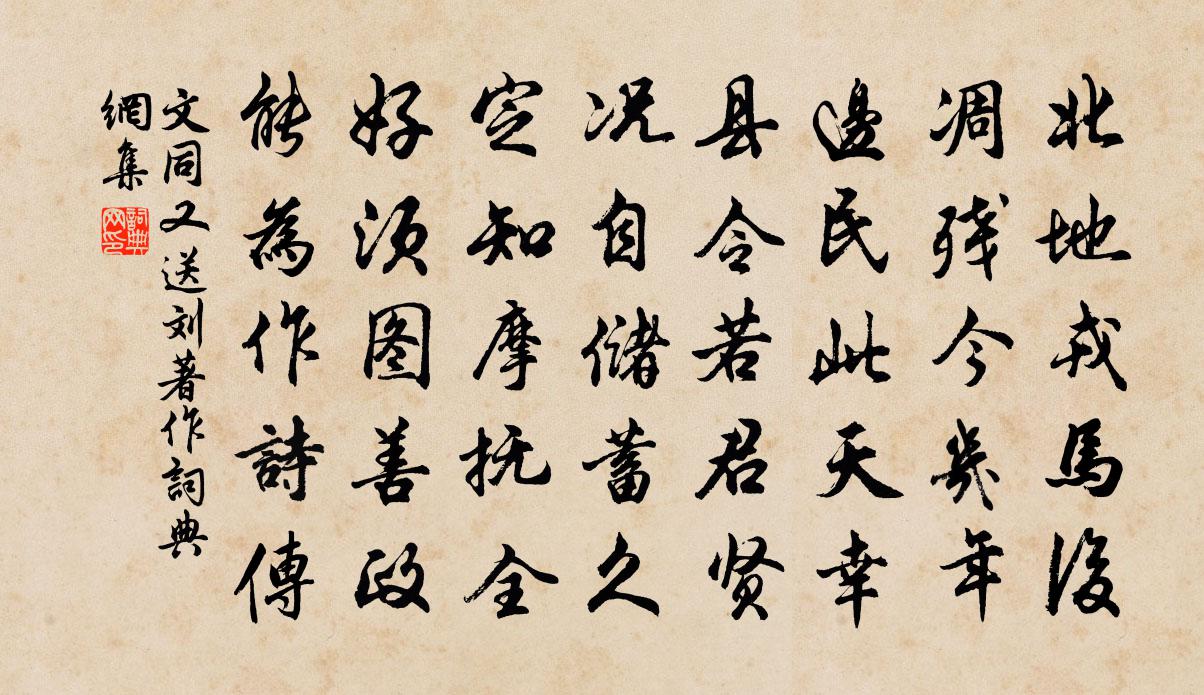 北地戎馬後
凋残今幾年
邊民此天幸
县令若君贤
况自儲蓄久
定知摩抚全
好须图善政
能為作詩傳
文同又送刘著作詞典
網集
詞典网印